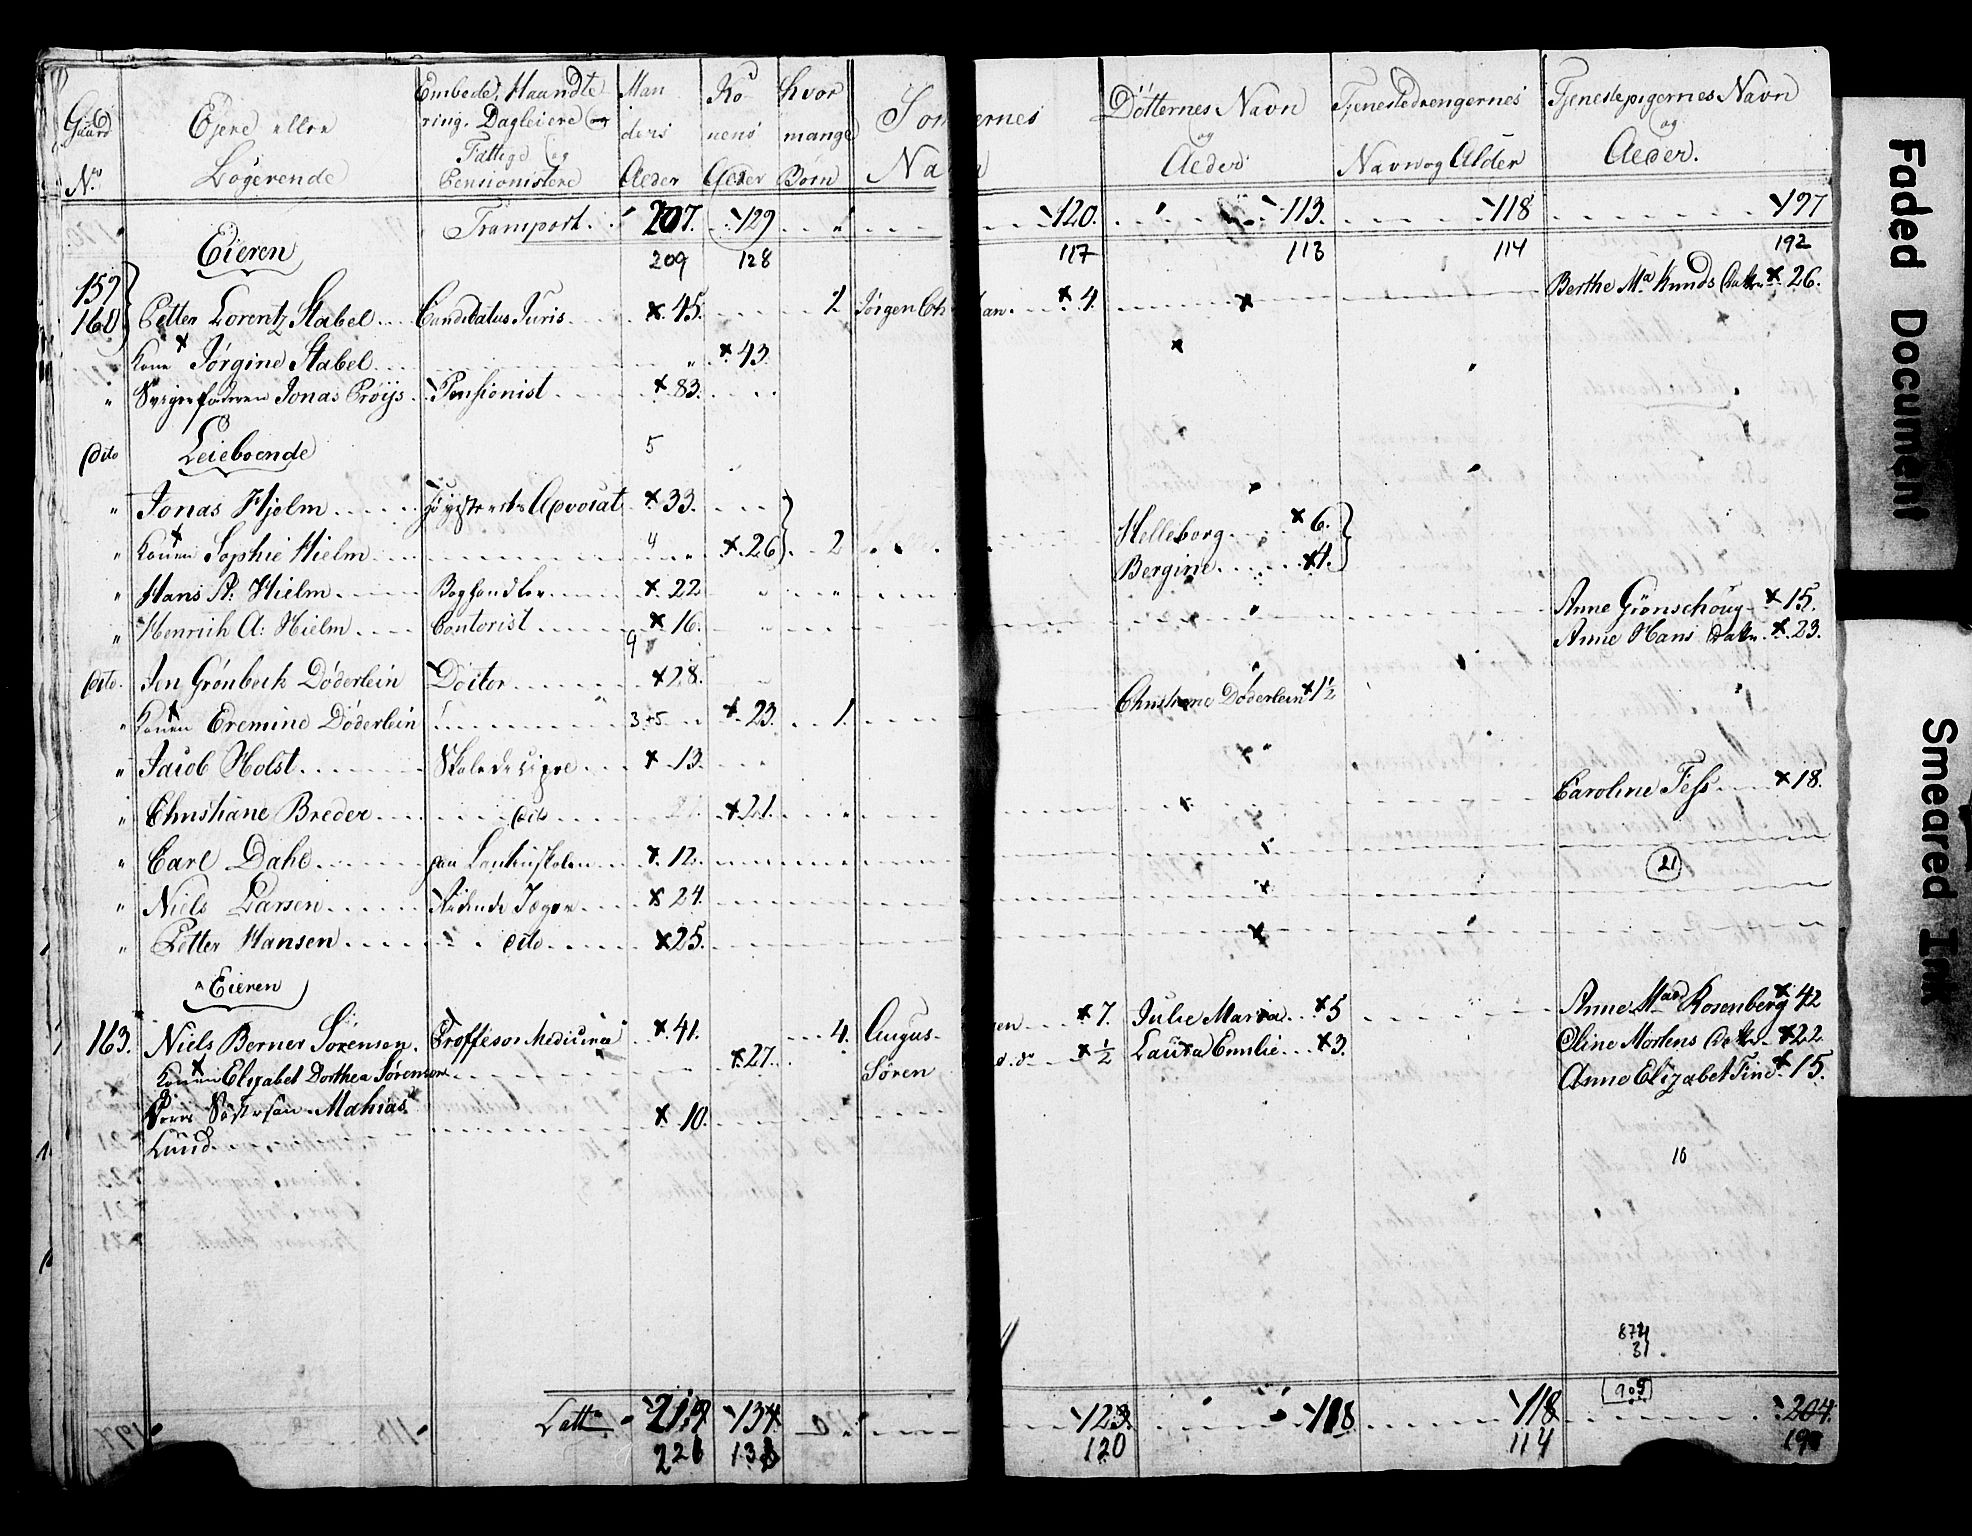 Gaard No. Ejere eller Logerende Embede, Haandte ring. Dagleiere og Fattige og Pensionistere Man ders Alder Ko nens Alder hvor mange Børn Sønnernes Na Døtternes Navn og Alder Tjenestedrengernes Navn og Alder Tjenestepigernes Navn og Alder.
Transport 207. 129 120. 113. 118 197
Eieren 209 128 117 113 114 192
159
160 Petter Lorentz Stabel Candidatus Juris x 45. Jørgen Ch an. x 4. Berthe Ma Knuds Datter x 26.
Kone Jørgine Stabel x 43.
Svigerfaderen Jonas Prøijs Pensionist x 83.
dito Leieboende 5
" Jonas Hjelm Høyesterets Advocat x 33.
" Konen Sophie Hielm 4 x 26 2 Helleborg x 6. Bergine x 4.
" Hans A: Hielm Boghandler x 22
" Henrich A: Hielm Contorist x 16. Anne Grönschoug x 15.
9 Anne Hans Datter x 23.
dito. Jen Grønbech Döderlein Doctor x 28.
" Konen Eremine Döderlein 3+5 x 23. 1. Christiane Döderlein x 1½
" Jacob Holst Skoledisipel x 13.
" Christiane Breder dito x 21. Caroline Fess x 18.
" Carl Dahl x 12. 21
" Niels Larsen Ridende Jæger x 24.
" Petter Hansen dito x 25.
Eieren
163. Niels Berner Sörensen Proffesor Medicinæ x 41. 4. Augus- x 7. Julie Maria x 5 Anne Mad Rosenberg x 42
Konen Elizabet Dorthea Sørensen x 27. Søren x ½ Laura Emilie x 3. Oline Mortens Datter x 22
Søstersøn Mathias x 10. Anne Elizabet Fine x 15.
Lund. 10
874
31
905
Latt 219 134 123. 118 118 204
226 133 120 114
Faded Document
Smeared Ink